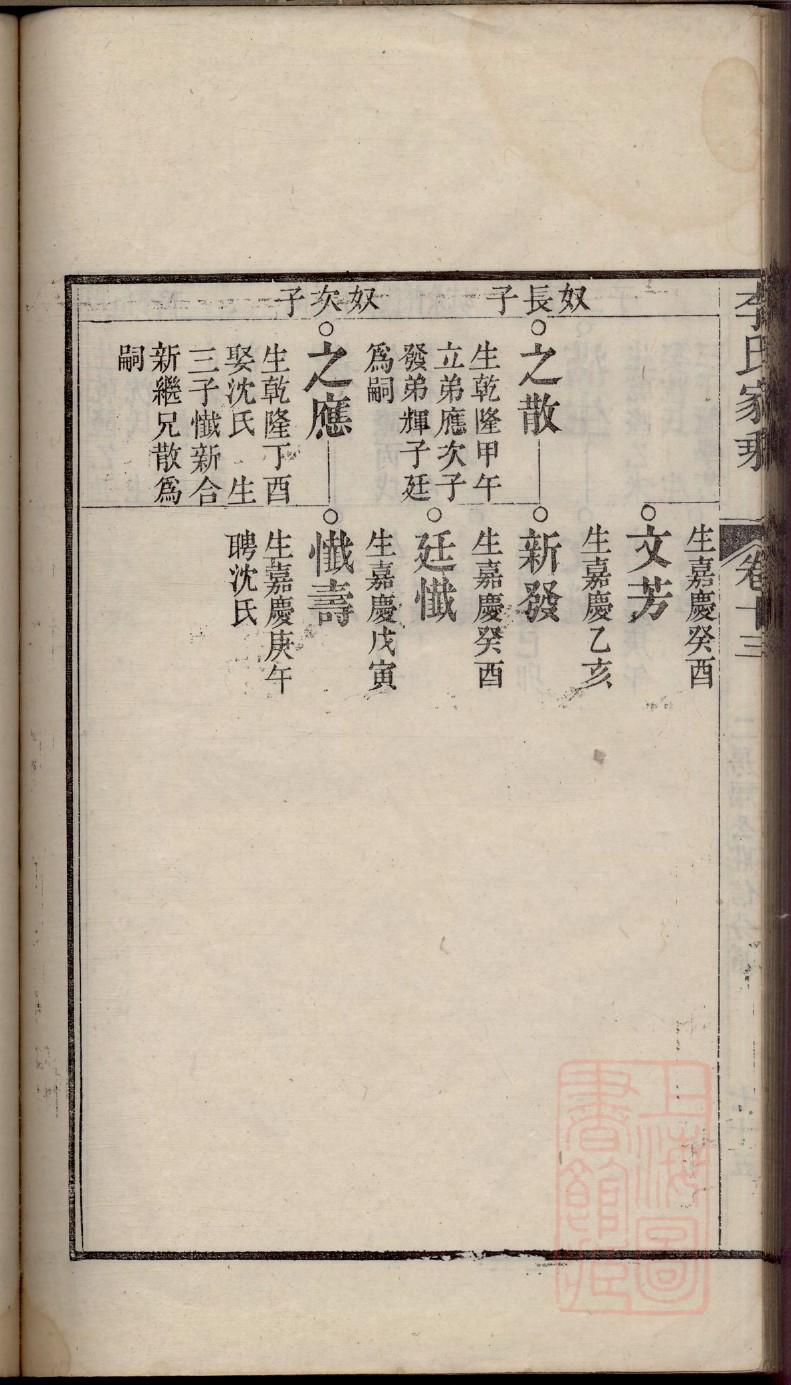 李氏家乘
卷十三
生嘉慶癸酉
文芳
生嘉慶乙亥
奴長子
之散
生乾隆甲午
立弟應次子
發弟輝子廷
為嗣
新發
生嘉慶癸酉
廷懺
生嘉慶戊寅
奴次子
之應
生乾隆丁酉
娶沈氏 生
三子懺新合
新繼兄散為
嗣
懺壽
生嘉慶庚午
聘沈氏
上海圖
書館藏